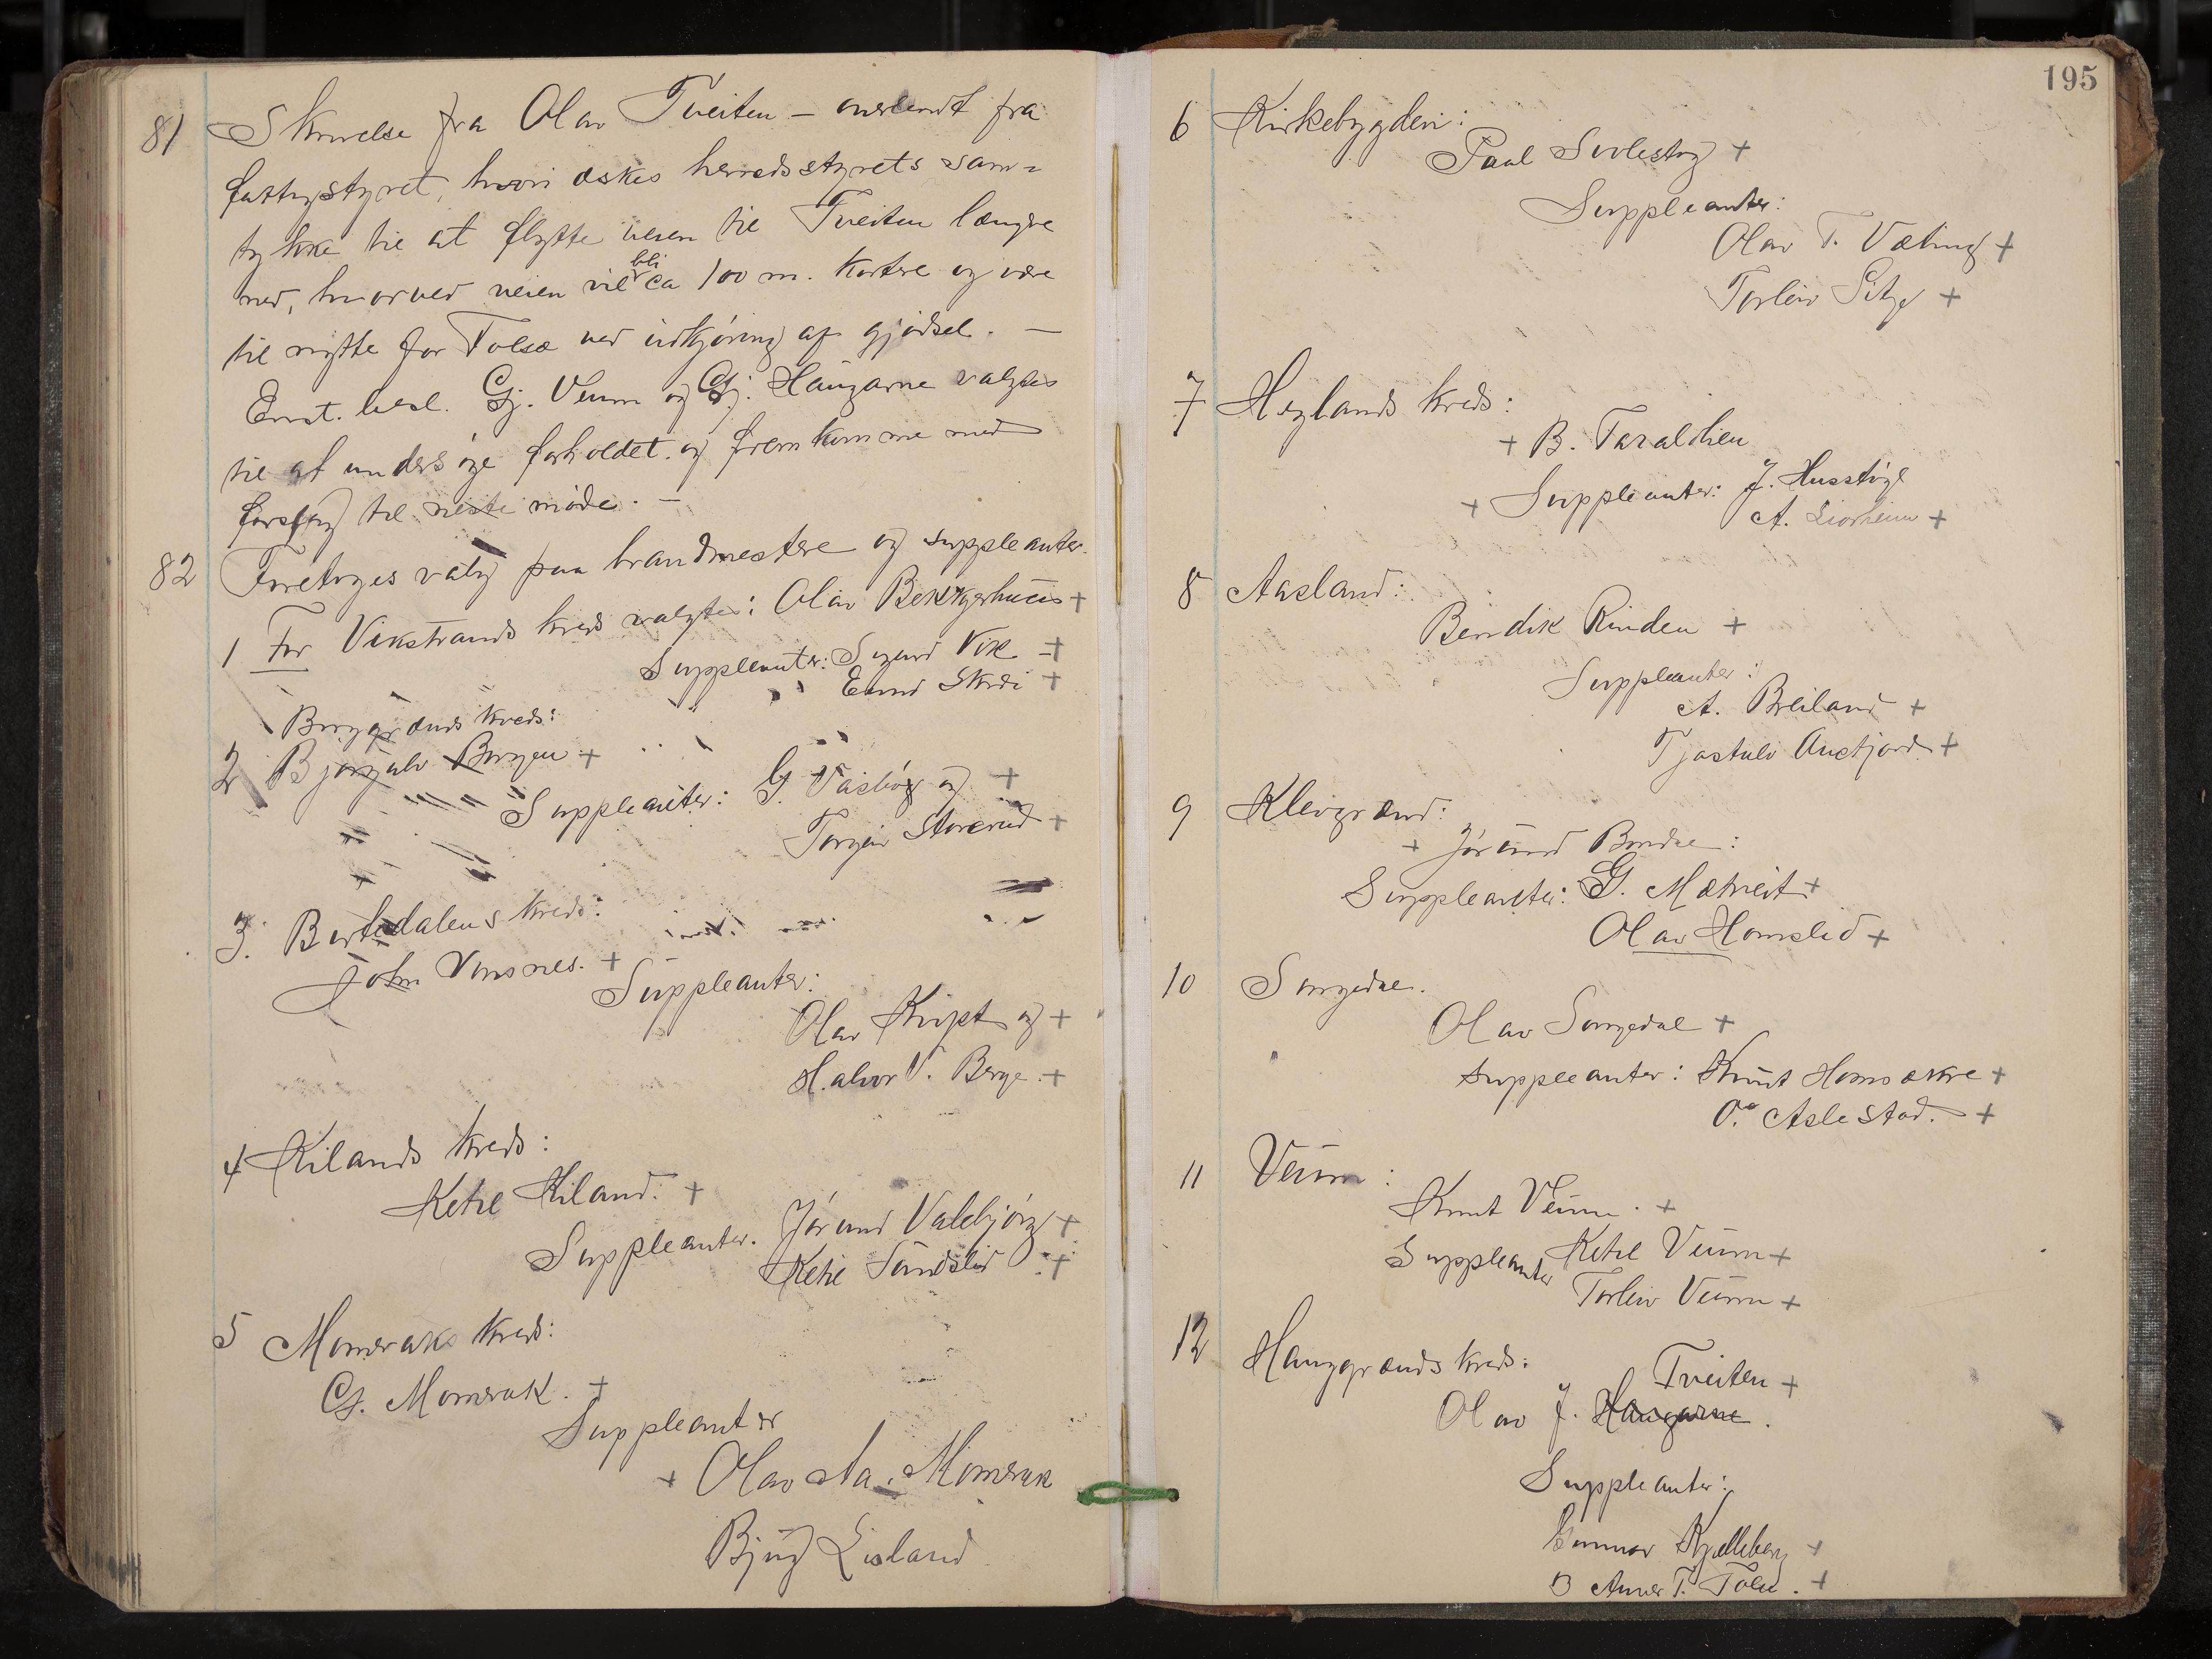 81 Skrivelse fra Olav Tveiten – oversendt fra
fattigstyret, hvori æskes herredsstyrets sam=
tykke til at flytte veien til Tveiten længre
ned, hvorved veien vil bli ca 100 m. kortere og være
til nytte for Tolsæ ved udkjöring af gjödsel. –
Enst. besl. Gj. Veum og Gj. Haugarne valgtes
til at undersöge forholdet og fremkomme med
forslag til neste möde. –
82 Foretoges valg paa brandmestere og suppleanter.
1 For Vikstrands kreds valgtes: Olav Bekkhus +
Suppleanter: Sigurd Vik +
Eivind Skrei +
Borggrænds kreds:
2 Bjørgulv Borgen +
Suppleanter: G. Vasbög og +
Torgeir Storerud +
3. Bortedalens kreds:
John Vonsnes. +
Suppleanter:
Olav Kvipt og +
Halvor V. Berge. +
4 Kilands kreds:
Ketil Kiland. +
Suppleanter. Jörund Valebjörg +
Ketil Sundslid +
5 Momraks kreds:
Gj. Momrak. +
Suppleanter
+ Olav Aa. Momrak
Bjug Lisland
195
6 Kirkebygden:
Paul +
Suppleanter:
Olav T. Væting +
Torleiv +
7 Heglands kreds:
+ B. Taraldlien
+ Suppleanter: J. Husstögl
A. Liorheim +
8 Aasland:
Bendik Rinden +
Suppleanter:
A. Breiland +
Tjostulv Austjord +
9 Kleivgrend:
+ Jörund Bondal:
Suppleanter: G. Mætveit +
Olav Homslid +
10 Songedal.
Olav Songedal +
Suppleanter: Knut Homsakre +
O. Aslestad. +
11 Veum:
Knut Veum. +
Suppleanter Ketil Veum +
Torleiv Veum +
12 Hauggrænds kreds:
Tveiten +
Olav J. Haugarne.
Suppleanter:
Gunnar Kjelleberg +
Anver T. Tolsæ. +